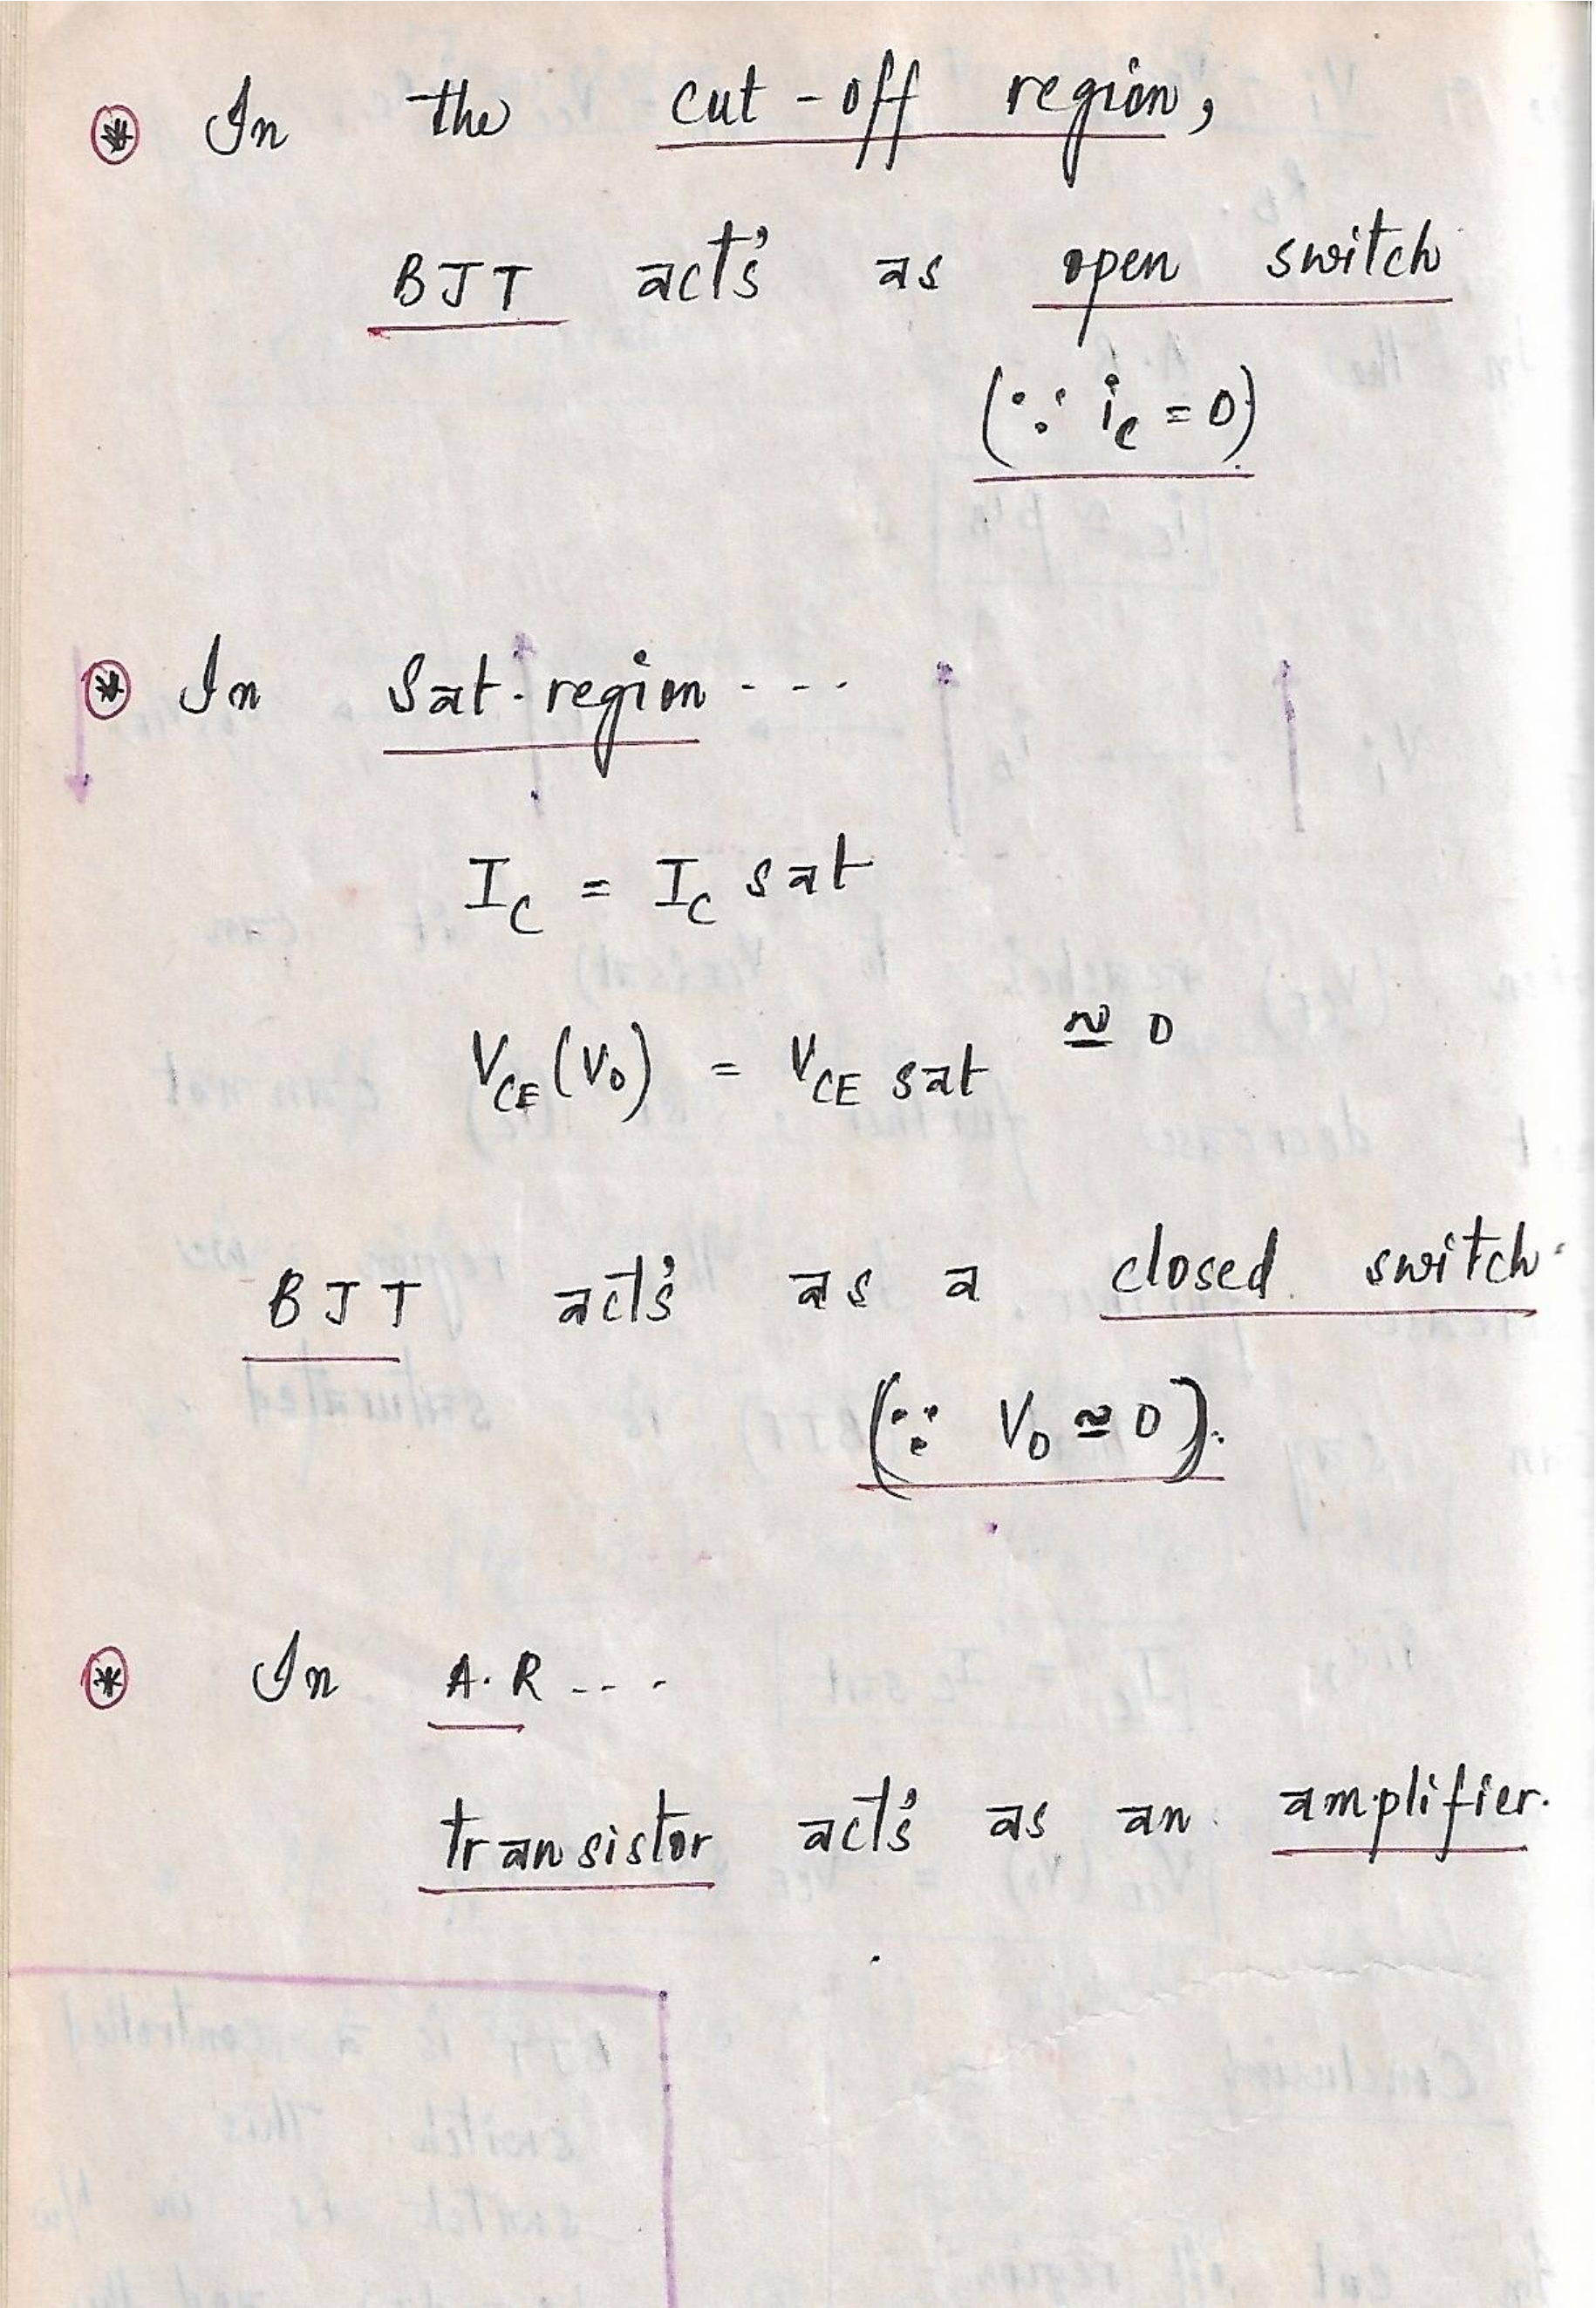 ⊛ In the cut-off region,
BJT act's as open switch
(∵ ic = 0).
⊛ In Sat. region - - -
IC = IC sat
VCE (V0) = VCE sat ≅ 0
BJT act's as a closed switch.
(∵ V0 ≅ 0).
⊛ In A.R - - -
transistor act's as an amplifier.